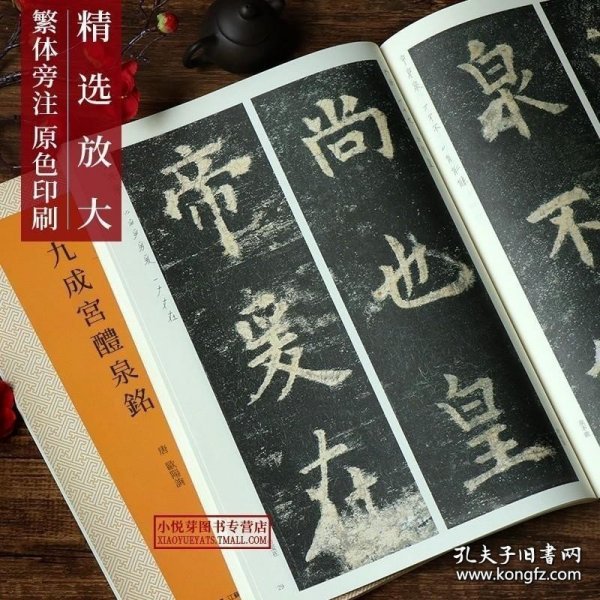 精选放大
繁体旁注 原色印刷
九成宮醴泉銘
唐 歐陽詢
泉
不
尚
也
皇
帝
爰
在
29
小悦芽图书专营店
XIAOYUEYATS.TMALL.COM
孔夫子旧书网
www.kongfz.com